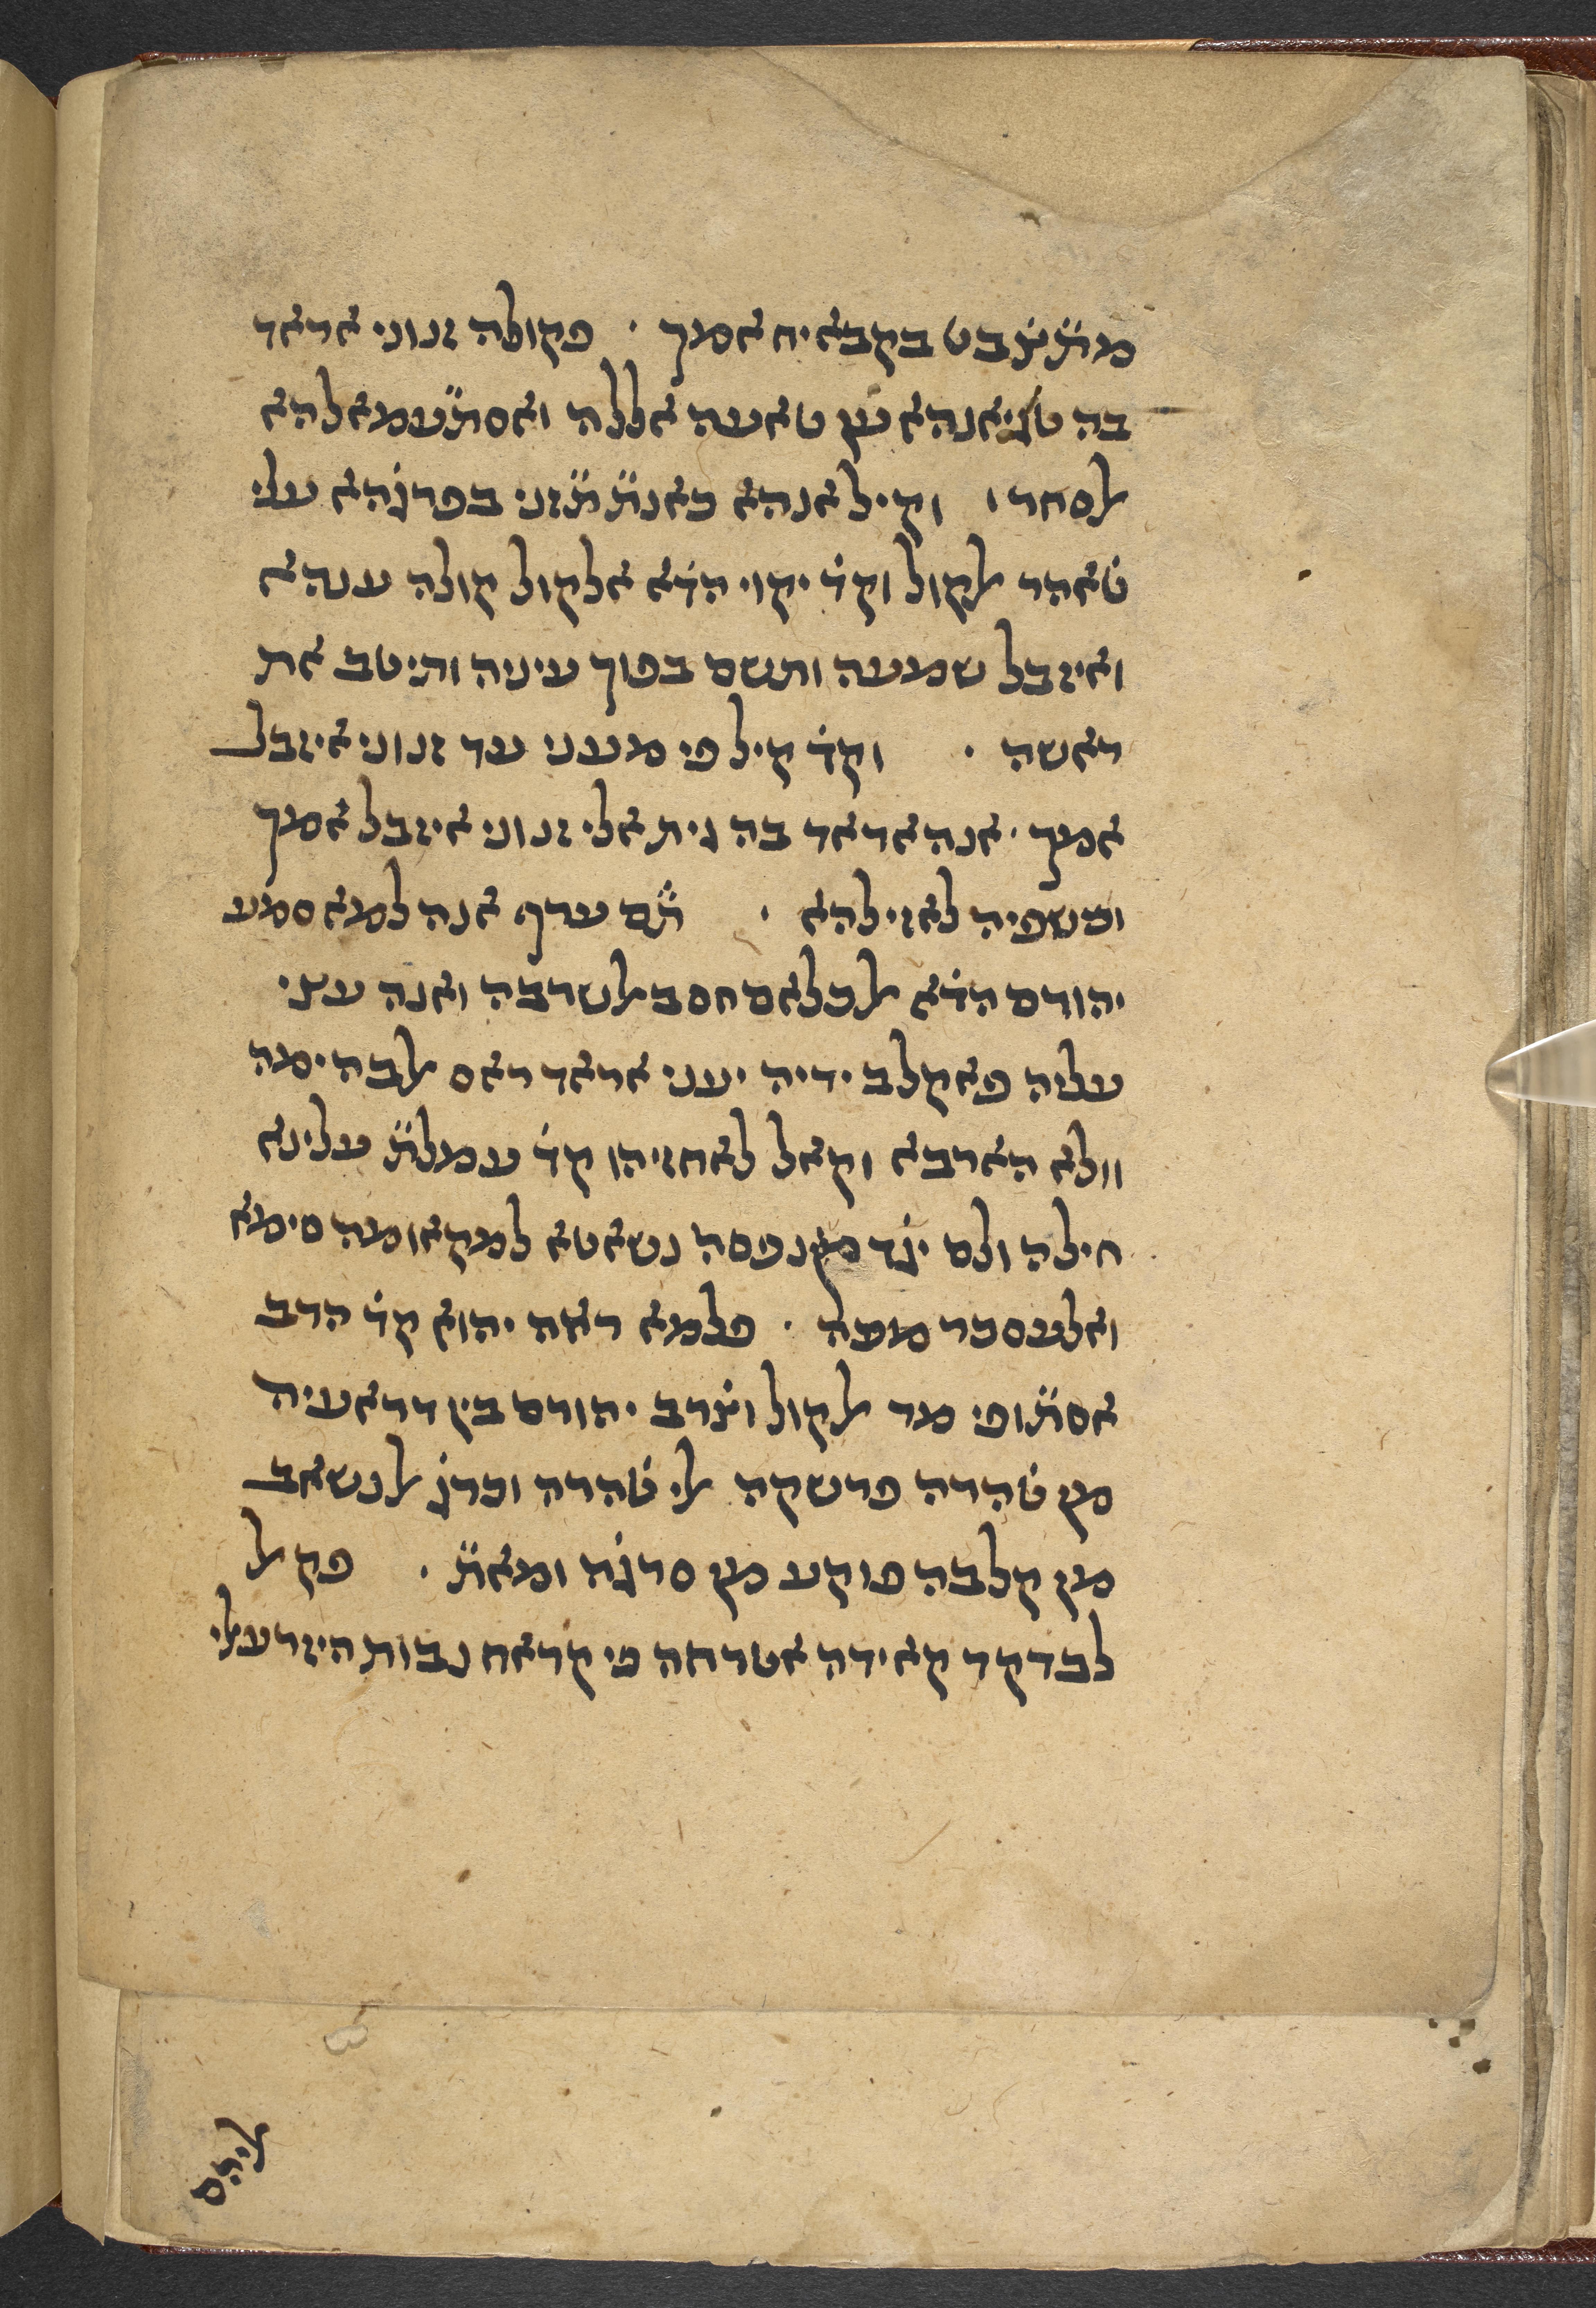 מתׄתׄבט בקבאיח אמך · פקולה זנוני אראד
בה טגיאנהא ען טאעה אללה ואסתׄעמאלהא
ﭏסחר ׳ וקיל אנהא כאנתׄ תׄזני בפרגׄהא עלי
טׄאהר ﭏקול וקדׄ יקוי הדׄא אלקול קולה ענהא
ואיזבל שמעה ותשם בפוך עיניה ותיטב את
ראשה · וקדׄ קיל פי מעני עד זנוני איזבל
אמך · אנה אראד בה גית אלי זנוני איזבל אמך
וכשפיה לאזילהא · תׄם ערף אנה למא סמע
יהורם הדׄא ﭏכלאם חסב ﭏשרבה ואנה עצי
עליה פאקלב ידיה יעני אראד ראס ﭏבהימה
וולא הארבא וקאל לאחזיהו קדׄ עמלתׄ עלינא
חילה ולם יגׄד מן נפסה נשאטא למקאומה סימא
ואלעסכר מעה · פלמא ראה יהוא קדׄ הרב
אסתׄופי מד ﭏקוס וצׄרב יהורם בין דראעיה
מן טׄהרה פרשקה ﭏי טׄהרה וכרגׄ ﭏנשאב
מן קלבה פוקע מן סרגׄה ומאתׄ · פקﭏ
לבדקד קאידה אטרחה פי קראח נבות היזרעﭏי
ﭏיהם